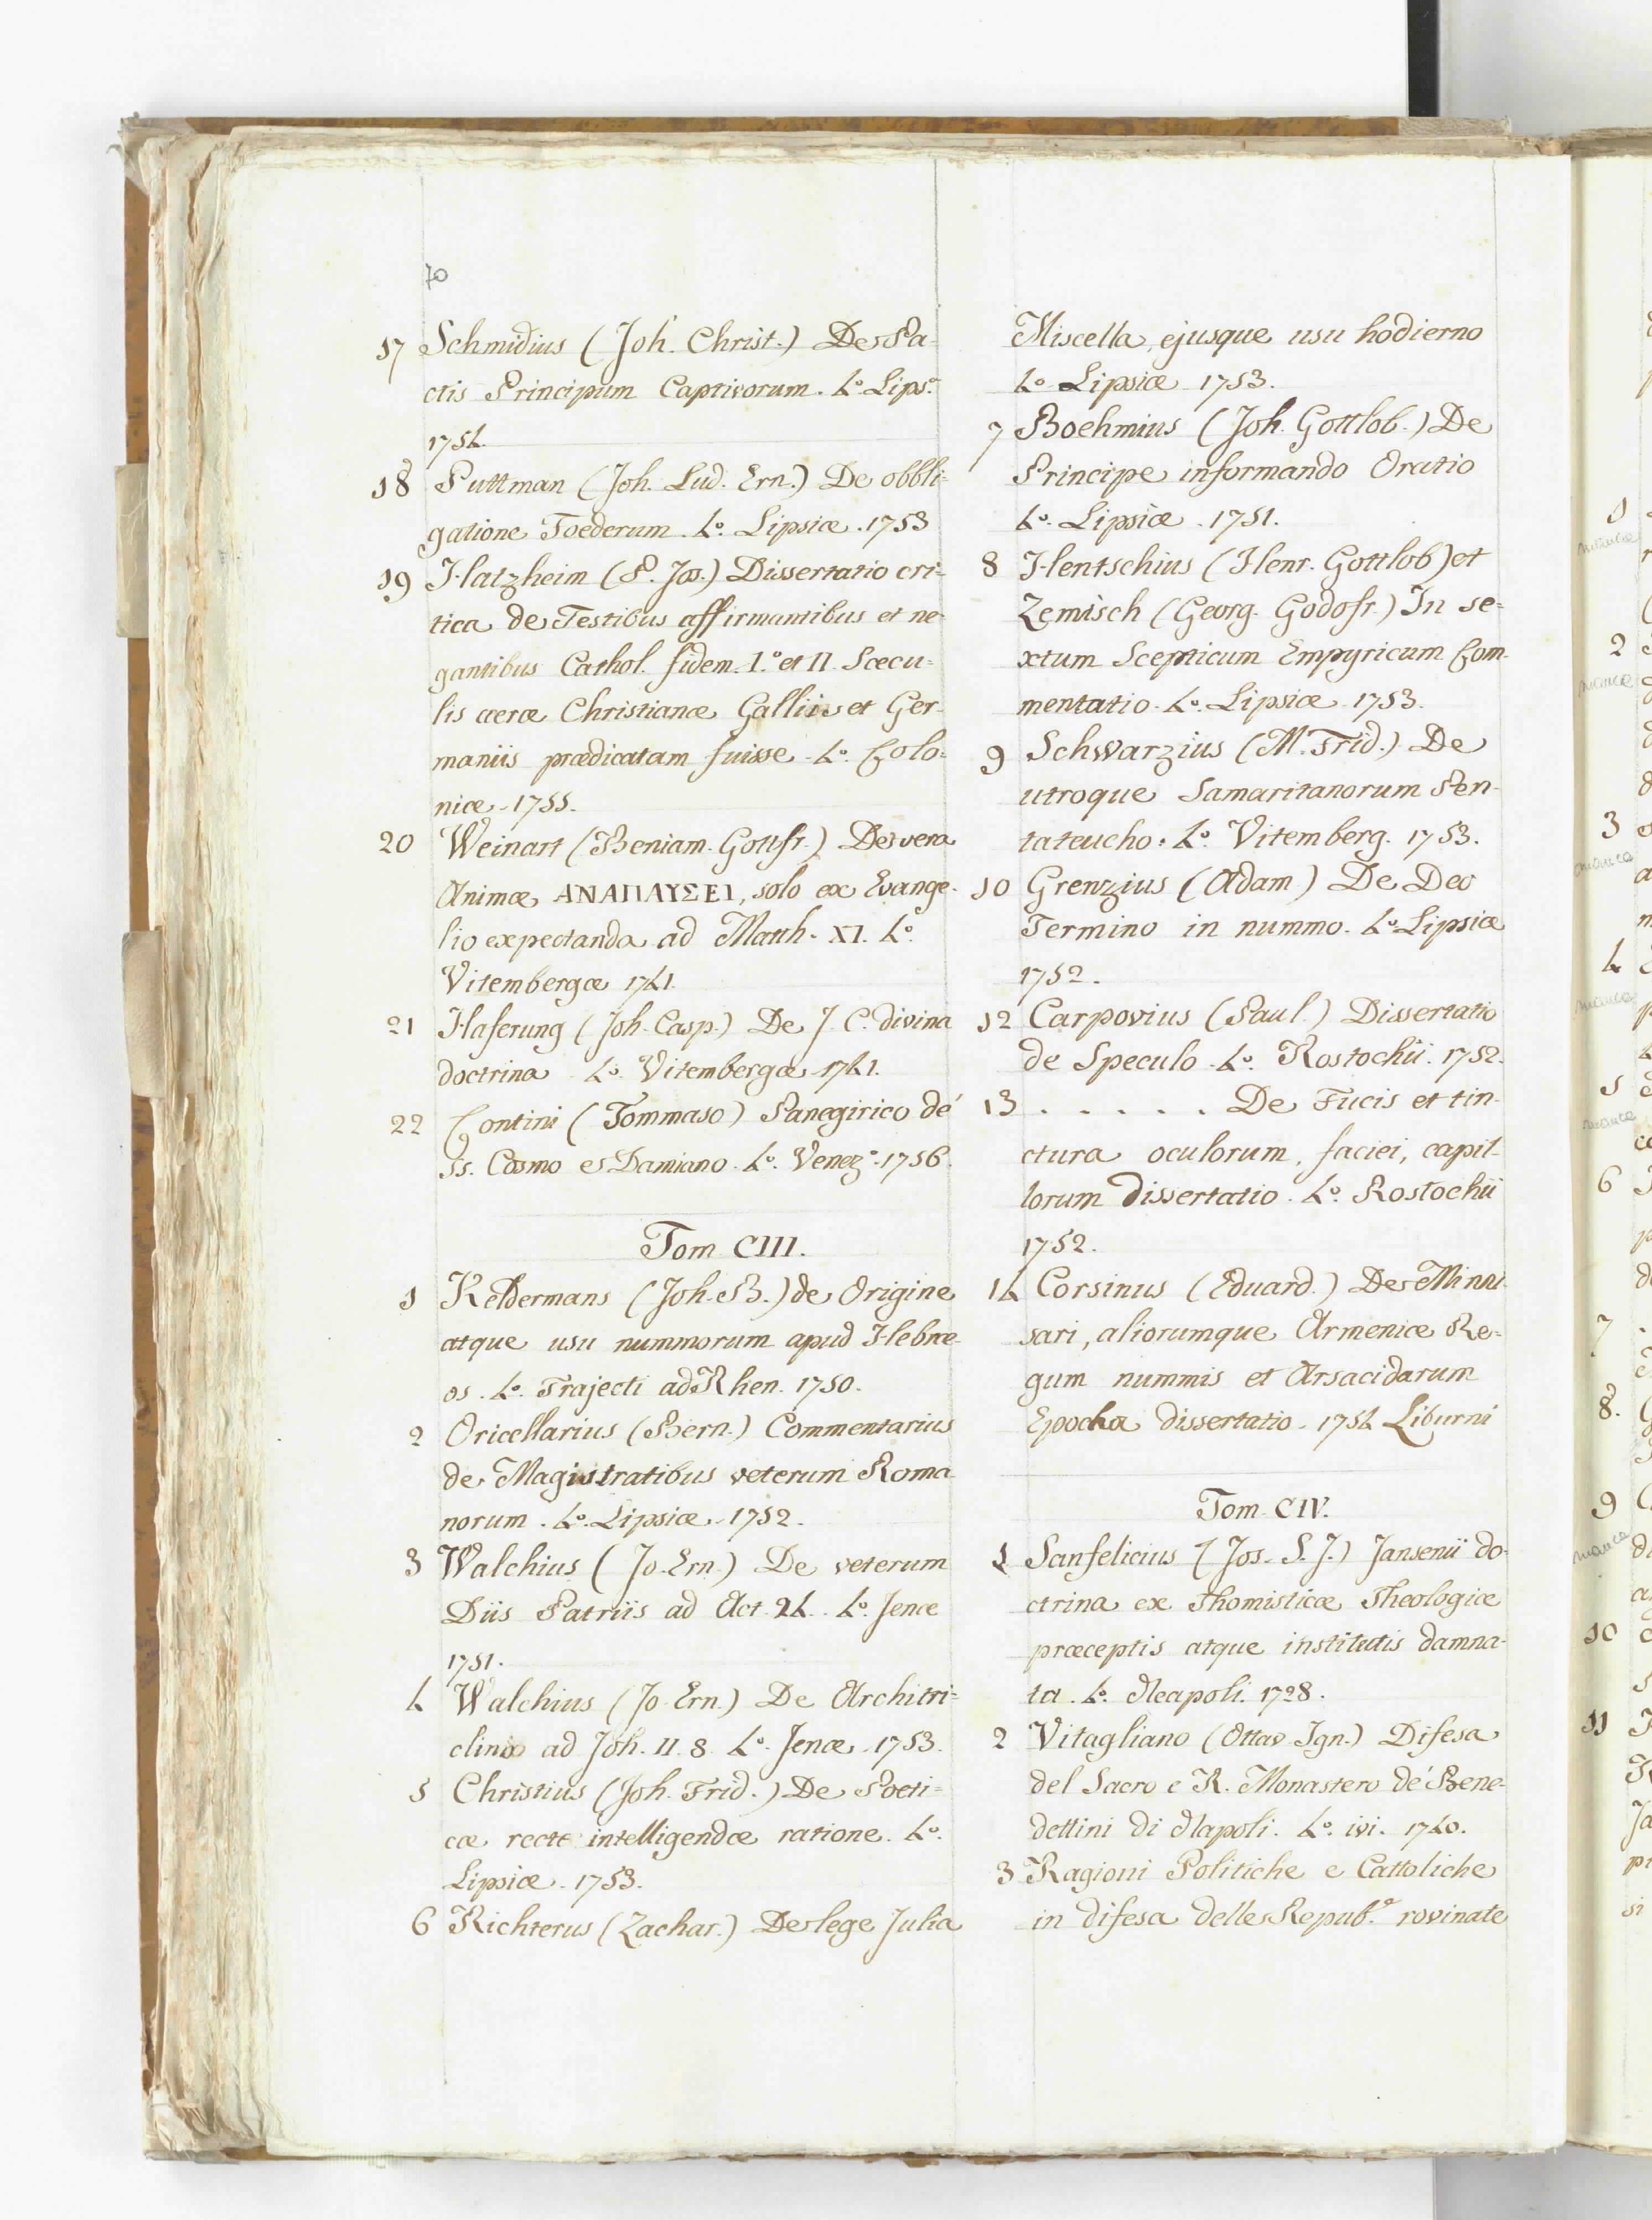 70
17 Schmidius (Joh. Christ.) De Pa-
ctis Principum Captivorum. 4.º Lips.ª
1754.
18 Puttman (Joh. Lud. Ern.) De obbli-
gatione Foederum. 4.º Lipsiæ. 1753
19 Hatzheim (P. Jos.) Dissertatio cri-
tica de Testibus affirmantibus et ne-
gantibus Cathol. fidem I.º et II Sæcu-
lis æræ Christianæ Galliis et Ger-
maniis prædicatam fuisse. 4.º Colo-
niæ. 1755.
20 Weinart (Beniam. Gottfr.) De vera
Animæ ΑΝΑΠΑΥΣΕΙ, solo ex Evange-
lio expectanda ad Matth. XI. 4.º
Vitembergæ 1741.
21 Haferung (Joh. Casp.) De J. C. divina
doctrina 4.º Vitembergæ 1741.
22 Contini (Tommaso) Panegirico de'
ss. Cosmo e Damiano. 4.º Venez.ª 1756.
Tom. CIII.
1 Keldermans (Joh. B.) de Origine
atque usu nummorum apud Hebræ-
os. 4.º Trajecti ad Rhen. 1750.
2 Oricellarius (Bern.) Commentarius
de Magistratibus veterum Roma-
norum. 4.º Lipsiæ. 1752.
3 Walchius (Jo. Ern.) De veterum
Diis Patriis ad Act. 24. 4.º Jenæ
1751.
4 Walchius (Jo. Ern.) De Architri-
clino ad Joh. II. 8. 4.º Jenæ. 1753.
5 Christius (Joh. Frid.) De Poeti-
cæ recte intelligendæ ratione. 4.º
Lipsiæ. 1753.
6 Richterus (Zachar.) De lege Julia
Miscella, ejusque usu hodierno
4.º Lipsiæ 1753.
7 Boehmius (Joh. Gottlob.) De
Principe informando Oratio
4.º Lipsiæ. 1751.
8 Hentschius (Henr. Gottlob) et
Zemisch (Georg. Godofr.) In se-
xtum Scepticum Empyricum Com-
mentatio. 4.º Lipsiæ 1753.
9 Schwarzius (M. Frid.) De
utroque Samaritanorum Pen-
tateucho. 4.º Vitemberg. 1753.
10 Grenzius (Adam) De Deo
Termino in nummo. 4.º Lipsiæ
1752.
12 Carpovius (Paul.) Dissertatio
de Speculo. 4.º Rostochii. 1752.
13 . . . . . . De Fucis et tin-
ctura oculorum, faciei, capil-
lorum dissertatio. 4.º Rostochii
1752.
14 Corsinus (Eduard.) De Minni-
sari, aliorumque Armeniæ Re-
gum nummis et Arsacidarum
Epocha dissertatio. 1754 Liburni
Tom. CIV.
1 Sanfelicius (Jos. S. J.) Jansenii do-
ctrina ex Thomisticæ Theologiæ
præceptis atque institutis damna-
ta. 4.º Neapoli. 1728.
2 Vitagliano (Ottav. Ign.) Difesa
del Sacro e R. Monastero de' Bene-
dettini di Napoli. 4.º ivi. 1740.
3 Ragioni Politiche e Cattoliche
in difesa delle Repub.e rovinate